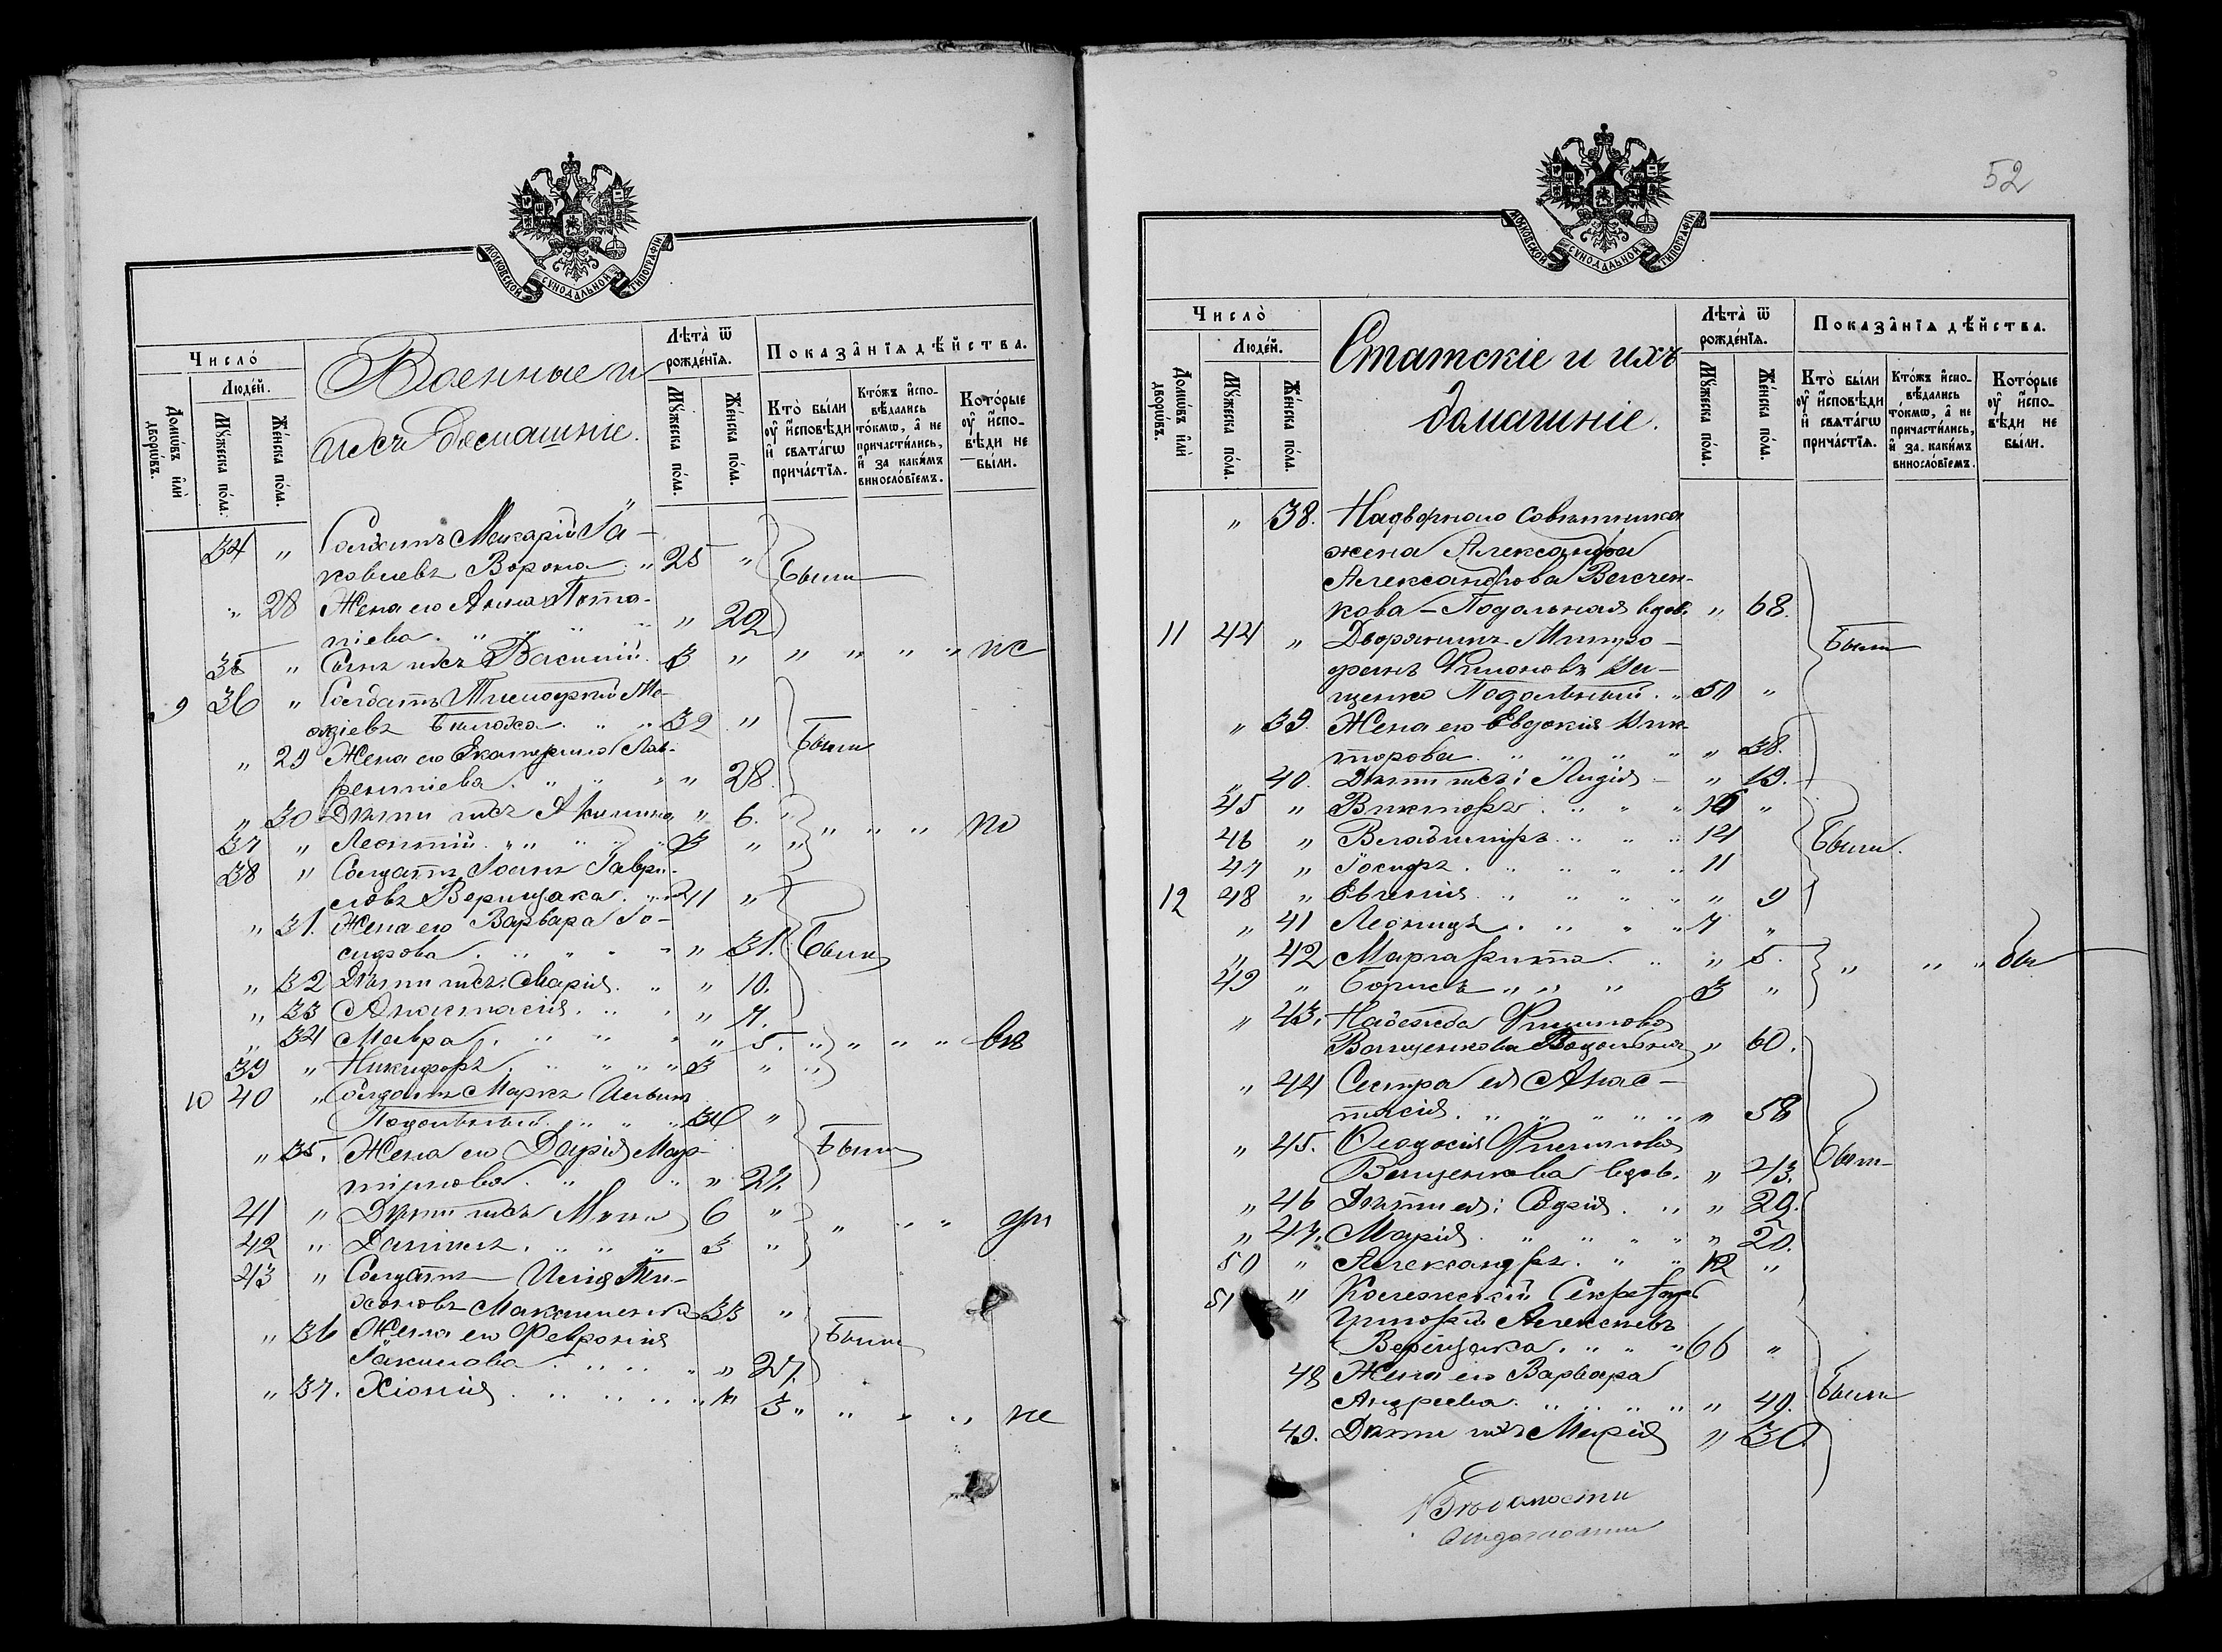 МОСКОВСКОЙ СѴНОДАЛЬНОЙ ТИПОГРАФІИ
Число̀
Людéй.
Домѡ́въ и҆лѝ дворѡ́въ.
Мꙋ́жеска по́ла.
Же́нска по́ла.
Военные и
ихъ домашніе.
Лѣта̀ ѿ рожде́нїѧ.
Мꙋ́жеска по́ла.
Же́нска по́ла.
Показа̑нїѧ дѣ́йства.
Кто̀ бы́ли ᲂу҆ и҆сповѣди и҆ свѧта́гѡ прича́стїѧ.
Кто́жъ и҆сповѣ́дались то́кмѡ, а҆ не причасти́лись, и҆ за каки́мъ винослóвїемъ.
Кото́рые ᲂу҆ и҆сповѣди не бы́ли.
34 " Солдатъ Макарій Іа-
ковлевъ Ворона " 25 " были
" 28 Жена его Анна Пота-
піева " " " 22
35 " Сынъ ихъ Василій 3 " " " " " не
9 36 " Солдатъ Тимофей Мо-
" " 32 "
" 29 Жена его Екатерина Лав-
рентіева " " " " 28. были
" 30 Дѣти ихъ Акилина " 6.
37 " Леонтій " " " 3 " " " " "
38 " Солдатъ Іоанъ Гаври-
ловъ Верещака " 41 "
" 31. Жена его Варвара Іо-
сифова " " " " 31. были
" 32 Дѣти ихъ Марія " " 10.
" 33 Анастасія " " " 7.
" 34 Мавра " " " " 5. " " " "
39 " Никифоръ " " " 3 " "
10 40 " Солдатъ Маркъ Ильинъ
Подольный " " 30 "
" 35. Жена его Дарія Мар-
тінова " " " 24. были
41 " Дѣти ихъ 6 " " " "
42 " Даніилъ " " " 3 "
43 " Солдатъ Илія Ти-
хоновъ Максименко 33 "
" 36 Жена его Февронія
Іакимова " " " 27. были
" 37. Хіонія " " " " 3 " " " " не
52
МОСКОВСКОЙ СѴНОДАЛЬНОЙ ТИПОГРАФІИ
Число̀
Людéй.
Домѡ́въ и҆лѝ дворѡ́въ.
Мꙋ́жеска по́ла.
Же́нска по́ла.
Статскіе и ихъ
домашніе.
Лѣта̀ ѿ рожде́нїѧ.
Мꙋ́жеска по́ла.
Же́нска по́ла.
Показа̑нїѧ дѣ́йства.
Кто̀ бы́ли ᲂу҆ и҆сповѣди и҆ свѧта́гѡ прича́стїѧ.
Кто́жъ и҆сповѣ́дались то́кмѡ, а҆ не причасти́лись, и҆ за каки́мъ винослóвїемъ.
Кото́рые ᲂу҆ и҆сповѣди не бы́ли.
" 38. Надворного Совѣтника
жена Александра
Александрова
кова - Подольная вдов. " 68.
11 44 " Дворянинъ Митро-
фанъ Филиповъ Ва-
щенко Подольный. " 50 " были
" 39. Жена его Евдокія Вик-
торова " " " " " 38.
" 40. Дѣти ихъ: Лидія - " 19.
45 " Викторъ " " " 16 "
46 " Владиміръ " " " 14
47 " Іосифъ " " " " 11 были.
12 48 " Евгенія " " " " " 9
" 41 Леонидъ " " " 7 "
" 42 Маргарита " " 5. " " "
49 " Борисъ " " " 3 "
" 43. Надежда Филипова
Ващенкова Подольная " 60.
" 44 Сестра ея Анас-
тасія " " " " " " 58
" 45. Феодосія Филипова
Ващенкова вдов. " 43. были
" 46 Дѣти ея: Софія " " 29.
" 47. Марія " " " " " 20.
50 " Александръ " " 12 "
51 " Колежскій Секретарь
Григорій Алексѣевъ
Верещака " " " 66 "
48 Жена его Варвара
Андреева " " " " " 49. были
49. Дѣти ихъ Марія " 30.